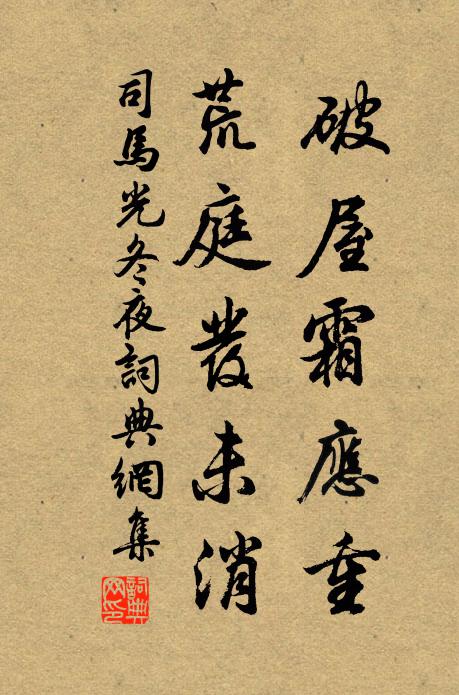 破屋霜應重
荒庭叢未消
司馬光冬夜詞典網集
詞典網印